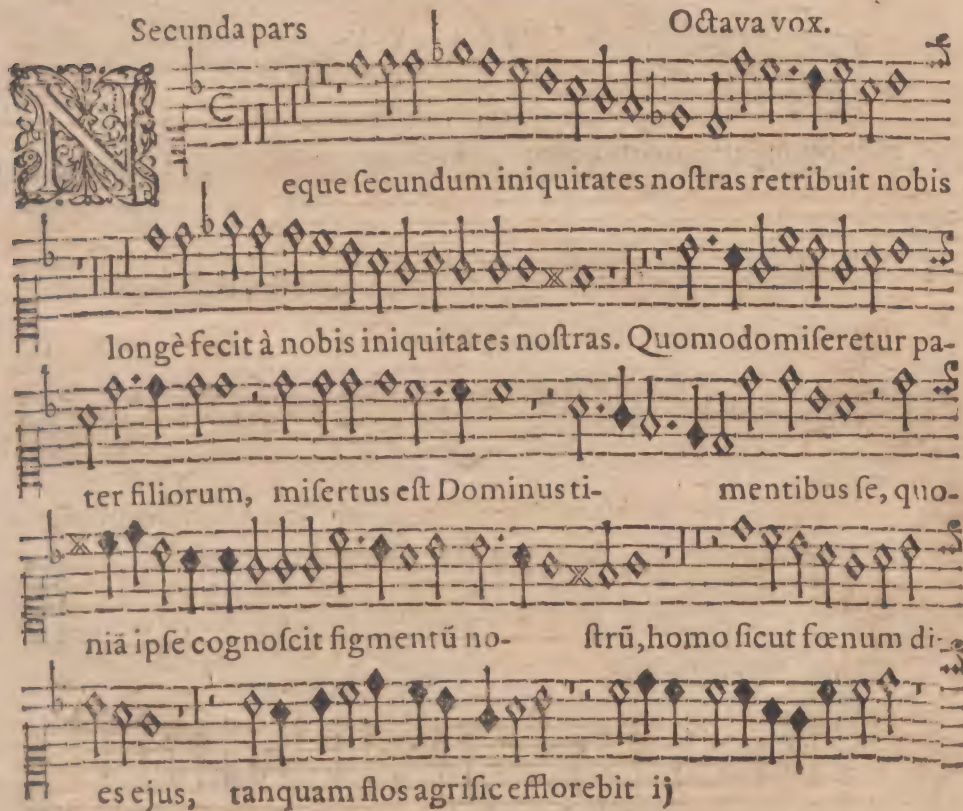 Secunda pars Octava vox.
Neque ſecundum iniquitates noſtras retribuit nobis
longè fecit à nobis iniquitates noſtras. Quomodomiſeretur pa-
ter filiorum, miſertus eſt Dominus ti- mentibus ſe, quo-
niā ipſe cognoſcit figmentū no- ſtrū, homo ſicut fœnum di-
es ejus, tanquam flos agriſic efflorebit ij